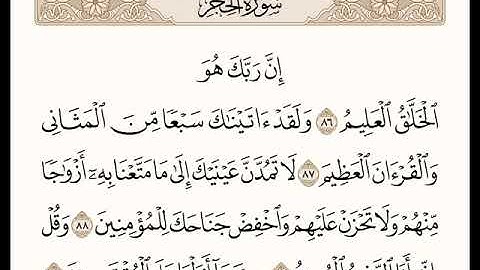 سُورَةُ الحِجْرِ
إِنَّ رَبَّكَ هُوَ
الْخَلَّاقُ الْعَلِيمُ ٨٦ وَلَقَدْ ءَاتَيْنَاكَ سَبْعًا مِّنَ الْمَثَانِي
وَالْقُرْءَانَ الْعَظِيمَ ٨٧ لَا تَمُدَّنَّ عَيْنَيْكَ إِلَىٰ مَا مَتَّعْنَا بِهِۦٓ أَزْوَٰجًا
مِّنْهُمْ وَلَا تَحْزَنْ عَلَيْهِمْ وَاخْفِضْ جَنَاحَكَ لِلْمُؤْمِنِينَ ٨٨ وَقُلْ